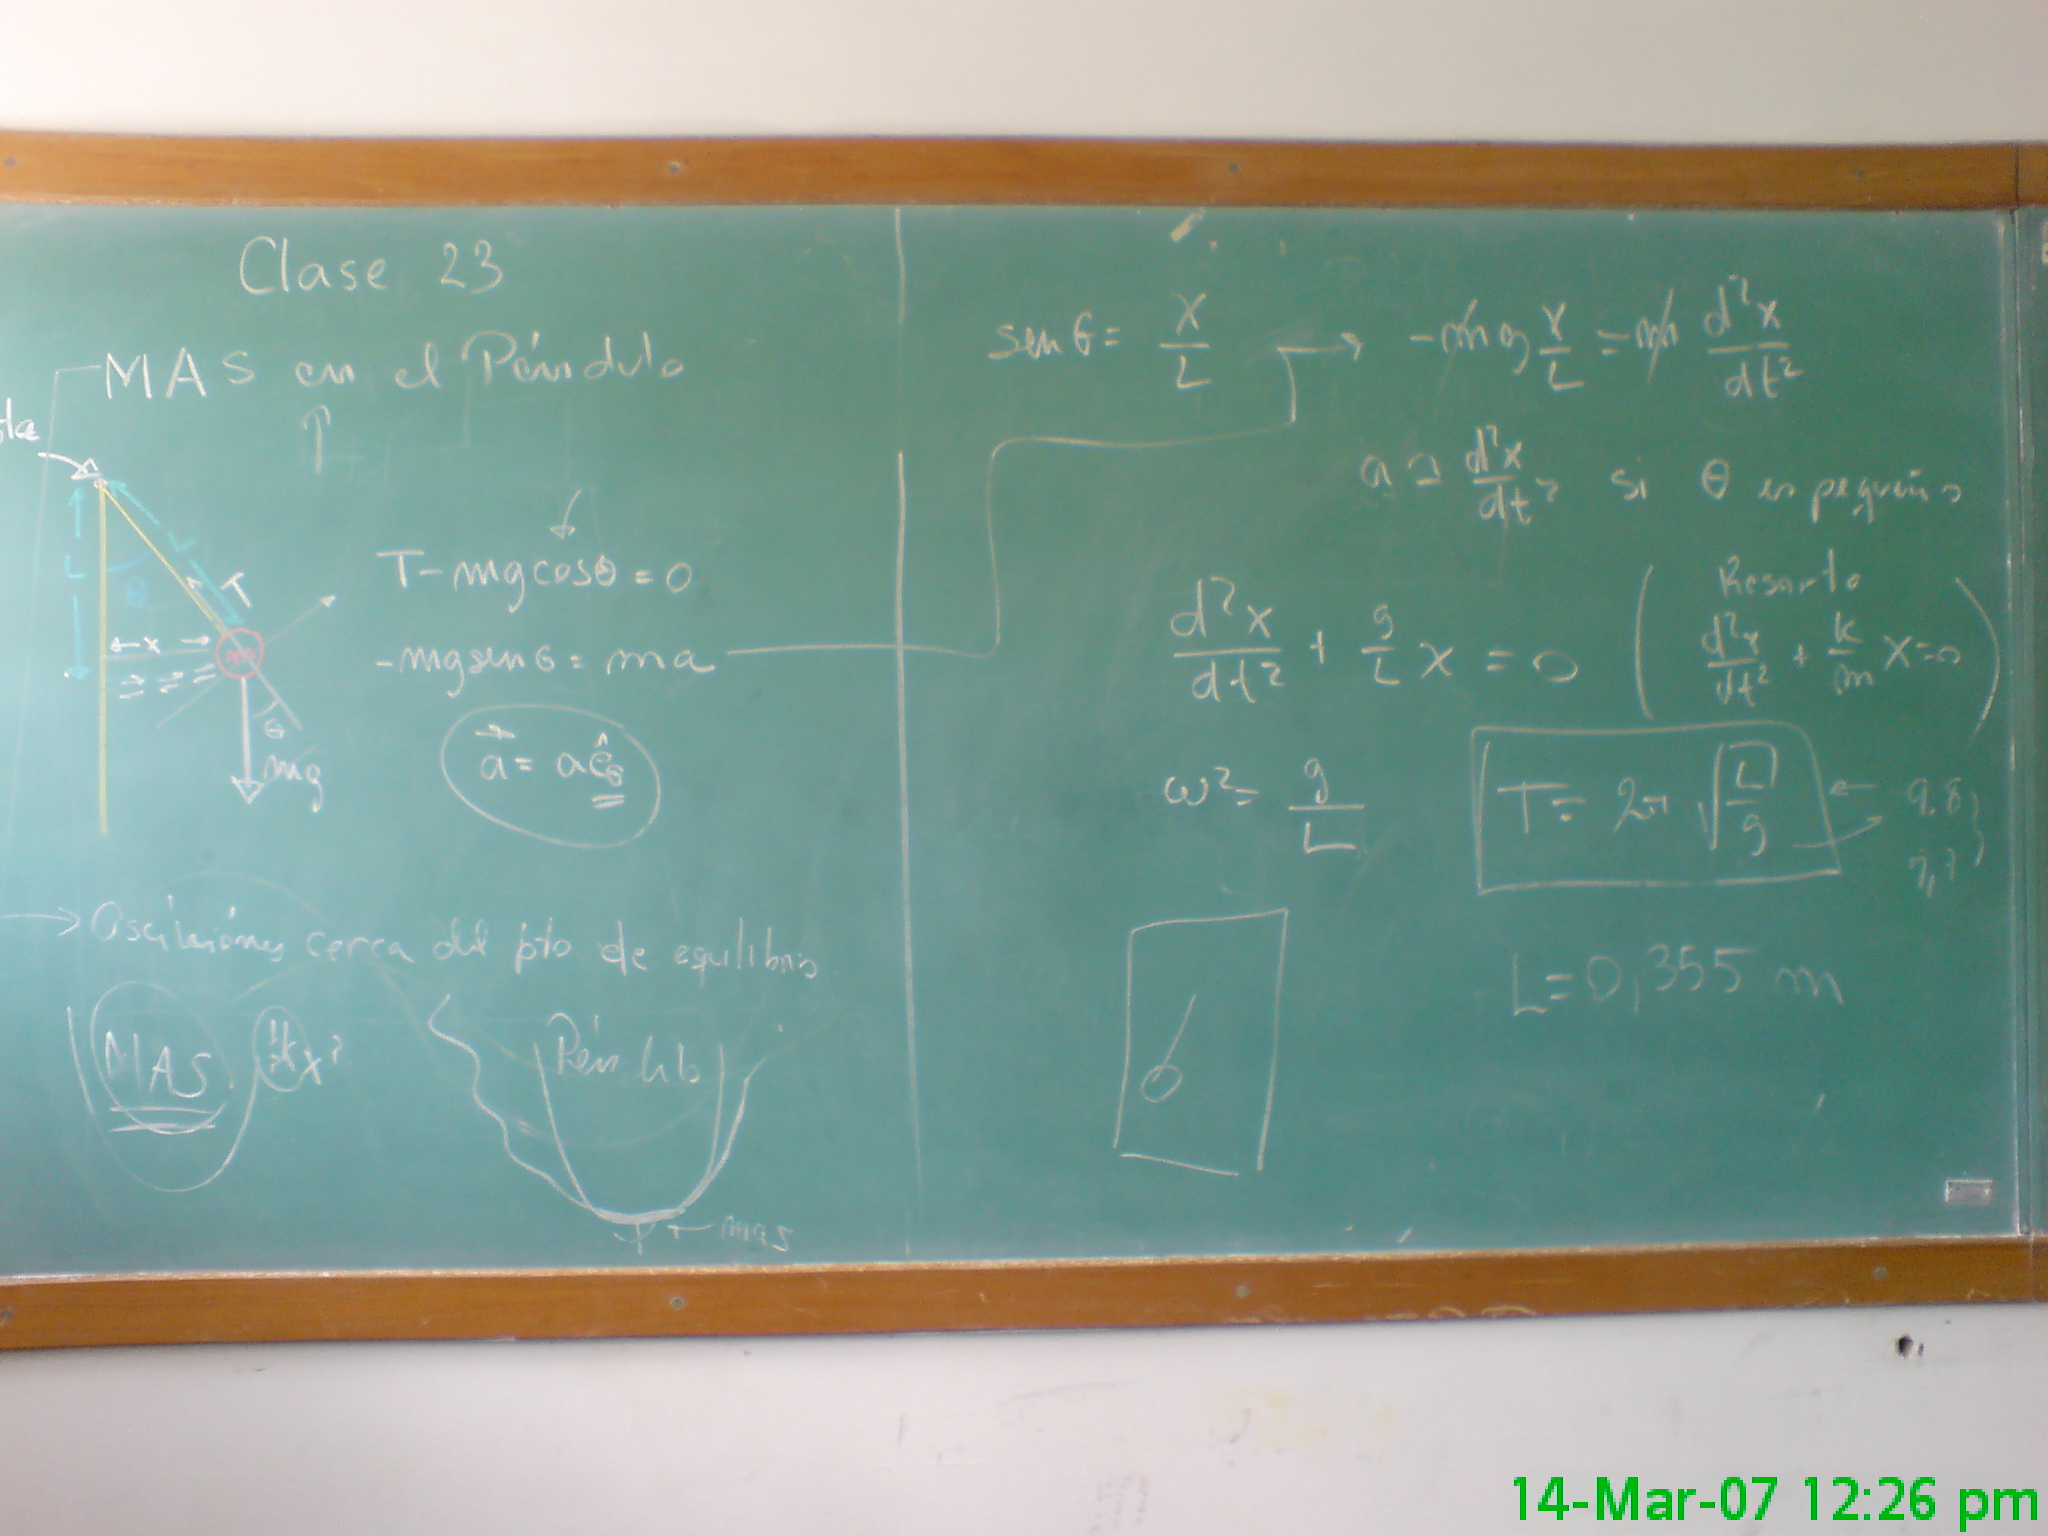 Clase 23
MAS en el Péndulo
L
L
θ
T
x
m
θ
mg
T - mg cosθ = 0
-mg senθ = ma
a⃗ = a ê_θ
→ Oscilaciones cerca del pto de equilibrio
MAS
Péndulo
← MAS
senθ = x/L
→ -mg x/L = m d²x/dt²
a ≃ d²x/dt² si θ es pequeño
d²x/dt² + g/L x = 0
(Resorte
d²x/dt² + k/m x = 0)
ω² = g/L
T = 2π √(L/g)
9,8
L = 0,355 m
14-Mar-07 12:26 pm